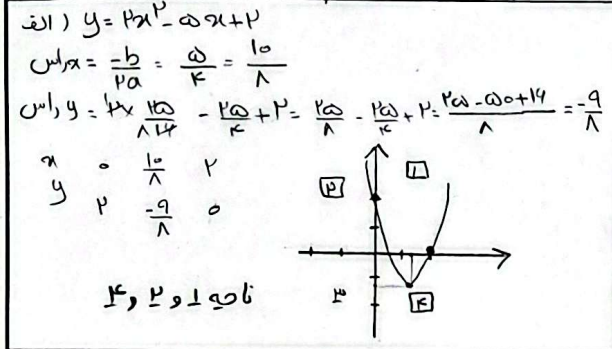 الف) y = ۲x² - ۵x + ۲
xراس = -b/۲a = ۵/۴ = ۱۰/۸
yراس = ۲ × ۲۵/۱۶ ۸ - ۲۵/۴ + ۲ = ۲۵/۸ - ۲۵/۴ + ۲ = ۲۵ - ۵۰ + ۱۶/۸ = -۹/۸
x ۰ ۱۰/۸ ۲
y ۲ -۹/۸ ۰
۲ ۱
۳ ۴
ناحیه ۱ و ۲ و ۴